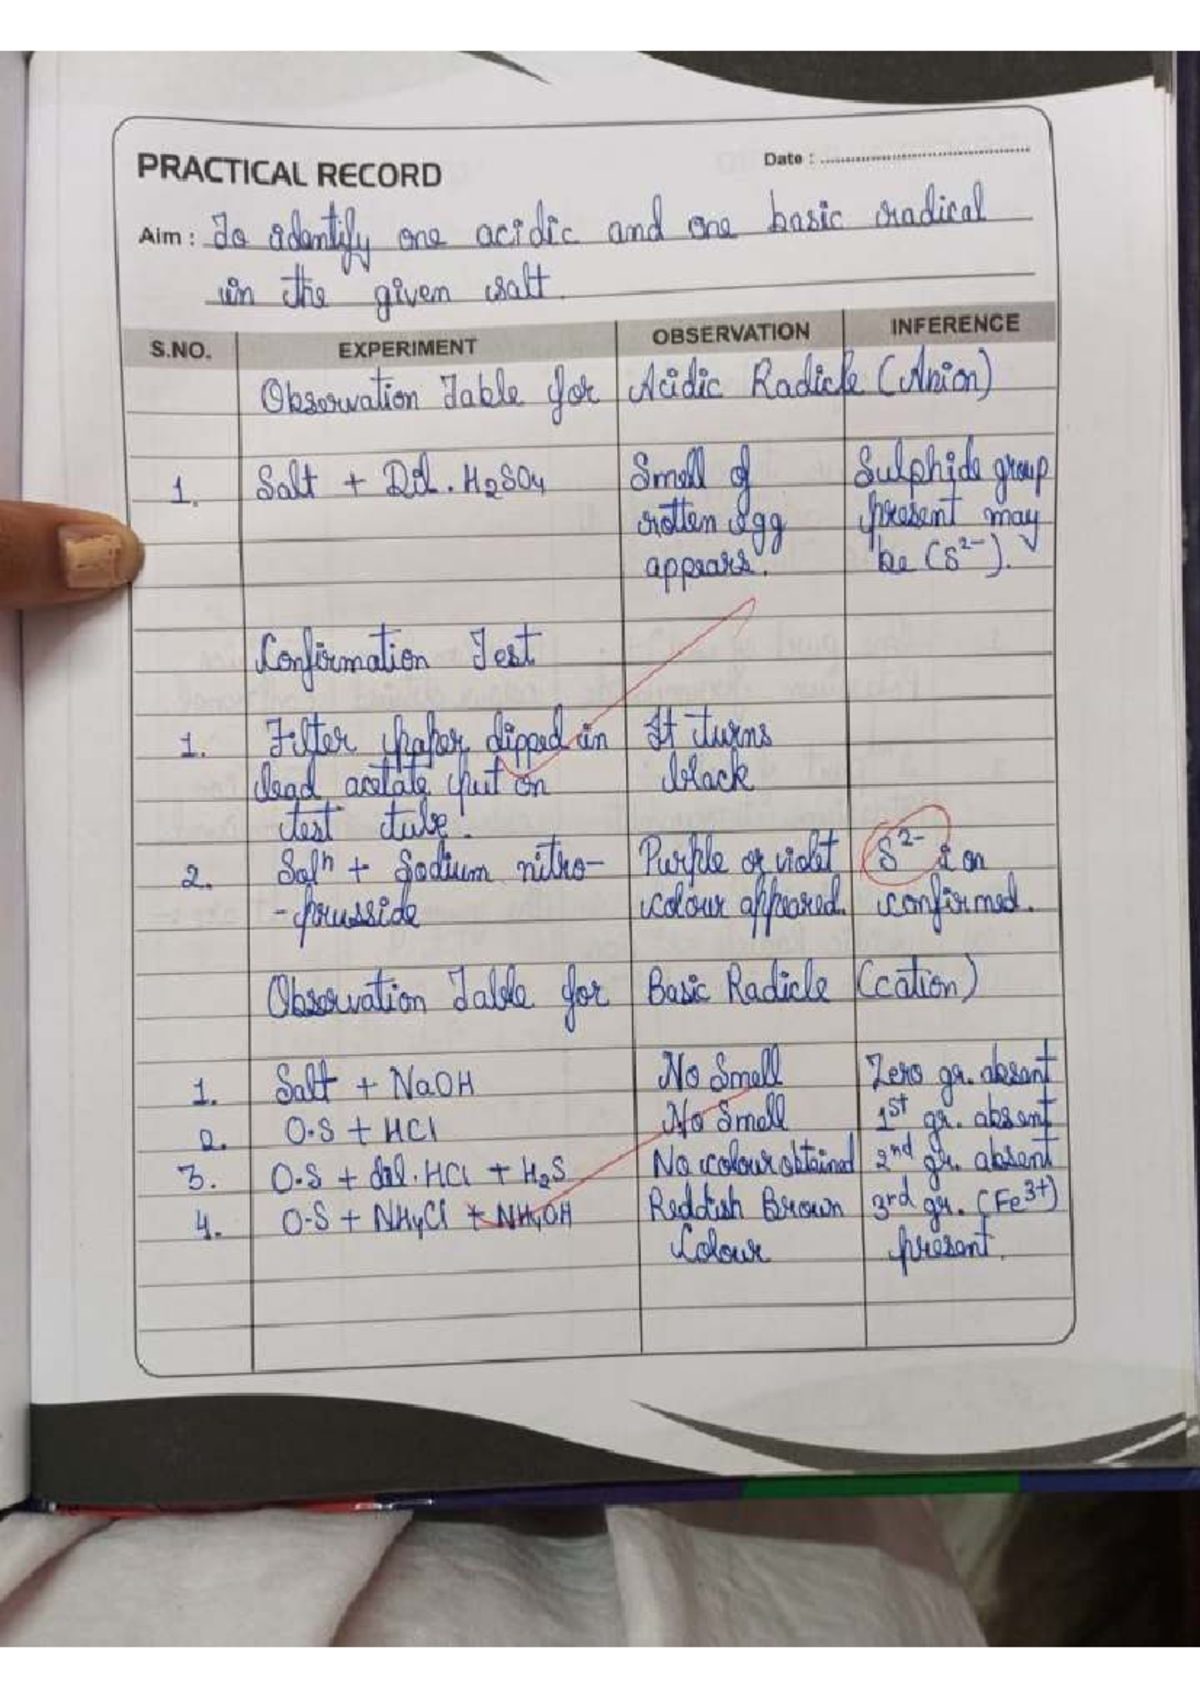 PRACTICAL RECORD
Date :
Aim : To identify one acidic and one basic radical
in the given salt.
S.NO. EXPERIMENT OBSERVATION INFERENCE
Observation Table for Acidic Radicle (Anion)
1. Salt + Dil. H₂SO₄ Smell of Sulphide group
rotten egg present may
appears. be (S²⁻).
Confirmation Test
1. Filter paper dipped in It turns
lead acetate put on black
test tube.
2. Solⁿ + Sodium nitro- Purple or violet S²⁻ ion
-prusside colour appeared. confirmed.
Observation Table for Basic Radicle (cation)
1. Salt + NaOH No Smell Zero gr. absent
2. O.S + HCl No Smell 1st gr. absent
3. O.S + dil. HCl + H₂S No colour obtained 2nd gr. absent
4. O.S + NH₄Cl + NH₄OH Reddish Brown 3rd gr. (Fe³⁺)
Colour present.